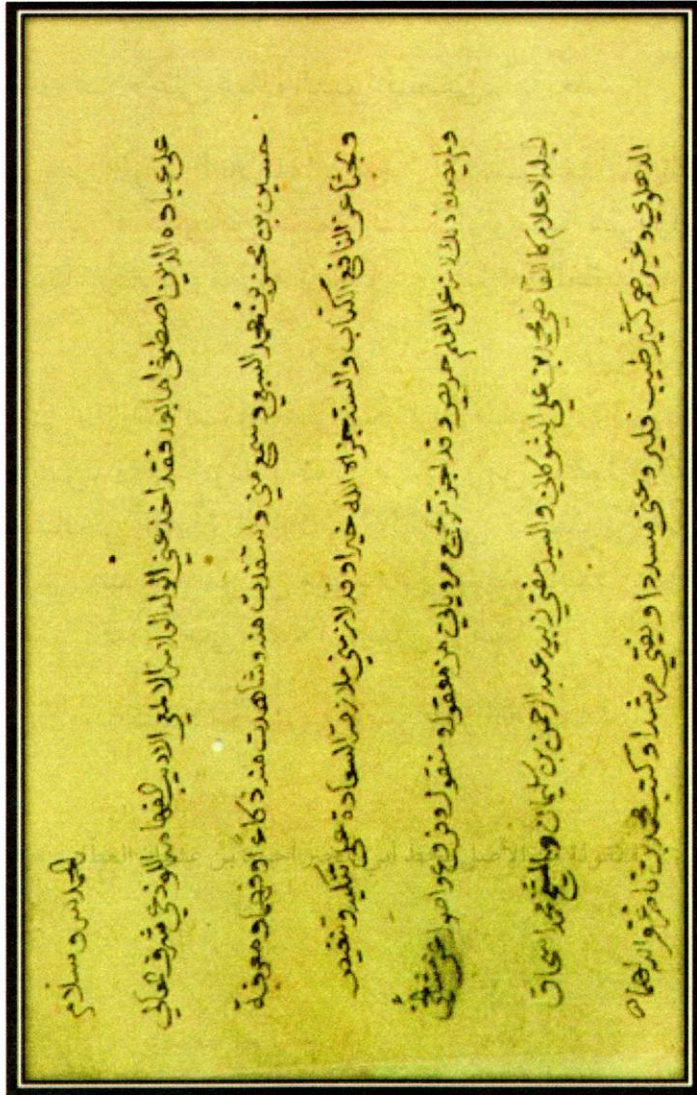 الحمد لله وسلام
على عباده الذين اصطفى اما بعد فقد اخذ عني الولد العلامة الالمعي الاديب الفهامة اللوذعي شرف المعالي
حسين بن محسن بن محمد السبعي وسمع مني واستفدت منه وشاهدت منه ذكاء وفهما ومعرفة
وبحثا عن النافع الكتاب والسنة جزاه الله خيرا وقد لازمني ملازمة السعادة على
ولم يصده ذلك لانه على العلم حريص وقد اجزته جميع مروياتي من معقول ومنقول وفروع واصول عن مشائخي
الاعلام كالقاضي محمد بن علي الشوكاني والسيد مفتي زبيد عبد الرحمن بن سليمان والشيخ محمد اسحاق
الدهلوي وغيرهم كثير طيب فليرو عني مسددا ويفتي مرشدا وكتب محمد بن ناصر غفر الله لهما